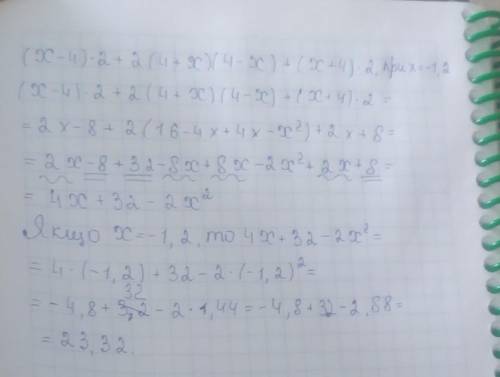 (x-4)·2+2(4+x)(4-x)+(x+4)·2, при x=-1,2
(x-4)·2+2(4+x)(4-x)+(x+4)·2=
=2x-8+2(16-4x+4x-x²)+2x+8=
=2x-8+32-8x+8x-2x²+2x+8=
=4x+32-2x²
Якщо x=-1,2, то 4x+32-2x²=
=4·(-1,2)+32-2·(-1,2)²=
=-4,8+32-2·1,44=-4,8+32-2,88=
=23,32.